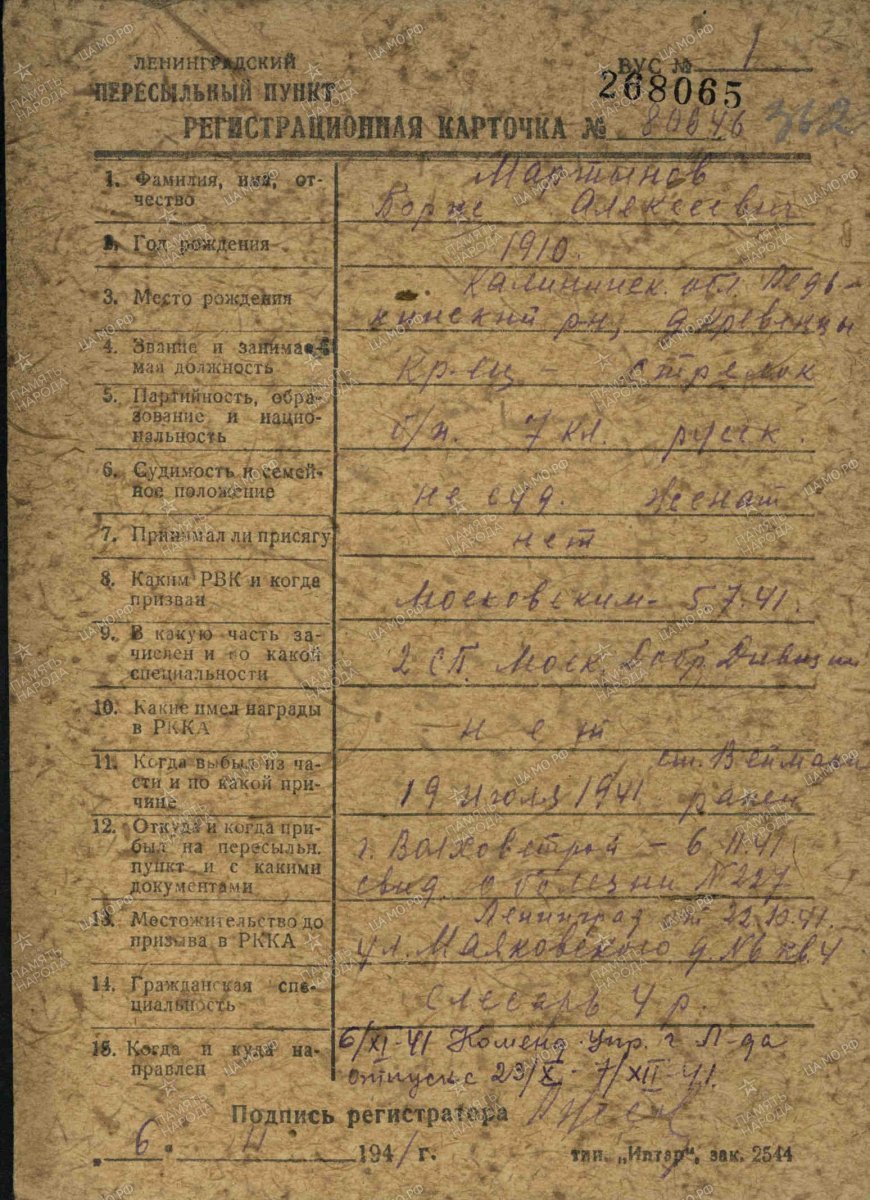 ЛЕНИНГРАДСКИЙ
ПЕРЕСЫЛЬНЫЙ ПУНКТ
ВУС № 1
268065
РЕГИСТРАЦИОННАЯ КАРТОЧКА № 80046 362
1. Фамилия, имя, отчество
Мартынов
Борис Алексеевич
2. Год рождения
1910.
3. Место рождения
Калининск. обл.
р-н,
4. Звание и занимаемая должность
Кр-ец – стрелок
5. Партийность, образование и национальность
б/п. 7 кл. русск.
6. Судимость и семейное положение
не суд. женат
7. Принимал ли присягу
нет
8. Каким РВК и когда призван
Московским – 5.7.41.
9. В какую часть зачислен и по какой специальности
2 СП. Моск. Добр. Дивизии
10. Какие имел награды в РККА
нет
11. Когда выбыл из части и по какой причине
ст. Веймарн
19 июля 1941 ранен
12. Откуда и когда прибыл на пересыльн. пункт и с какими документами
г. Волховстрой – 6.11.41
свид. о болезни № 227
от 22.10.41.
13. Местожительство до призыва в РККА
Ленинград
ул. Маяковского д. № 6 кв. 4
14. Гражданская специальность
Слесарь 4 р.
15. Когда и куда направлен
6/XI-41 Коменд. Упр. г. Л-да
отпуск с 23/X - 7/XII-41.
Подпись регистратора
6. 11 1941 г.
тип. „Интар“, зак. 2544
ПАМЯТЬ НАРОДА
ЦАМО.РФ